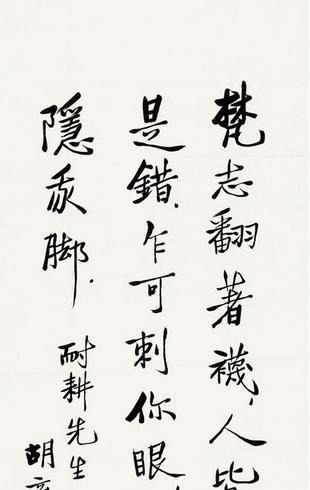 梵志翻著襪，人皆
是錯．乍可刺你眼，
隱我脚．
耐耕先生
胡